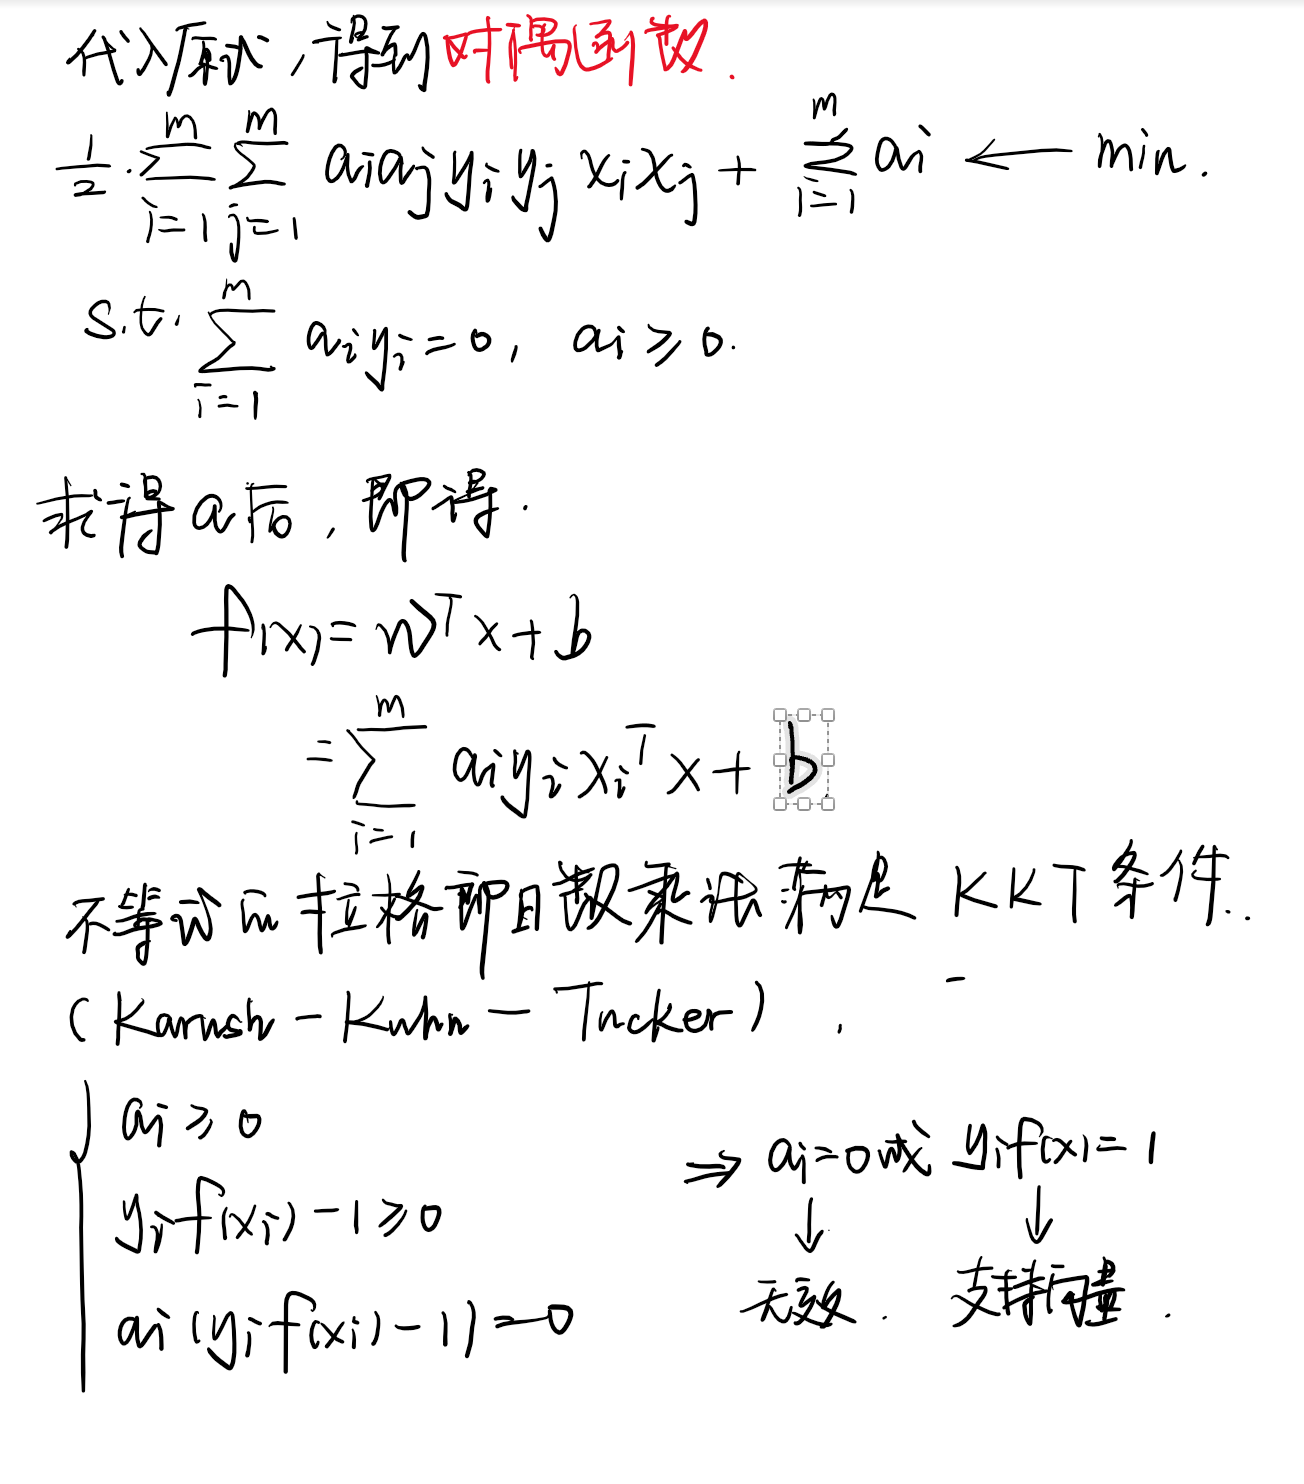 代入原式，得到对偶函数.
1/2·∑_{i=1}^{m}∑_{j=1}^{m} aiajyiyjxixj + ∑_{i=1}^{m} ai ← min.
s.t. ∑_{i=1}^{m} aiyi = 0, ai ≥ 0.
求得a后，即得.
f(x) = w^T x + b
= ∑_{i=1}^{m} aiyixi^T x + b
不等式的拉格朗日数乘法满足 KKT条件.
(Karush - Kuhn - Tucker)
ai ≥ 0
yif(xi) - 1 ≥ 0
ai(yif(xi) - 1) = 0
⇒ ai = 0 或 yif(x) = 1
↓ ↓
无效. 支持向量.